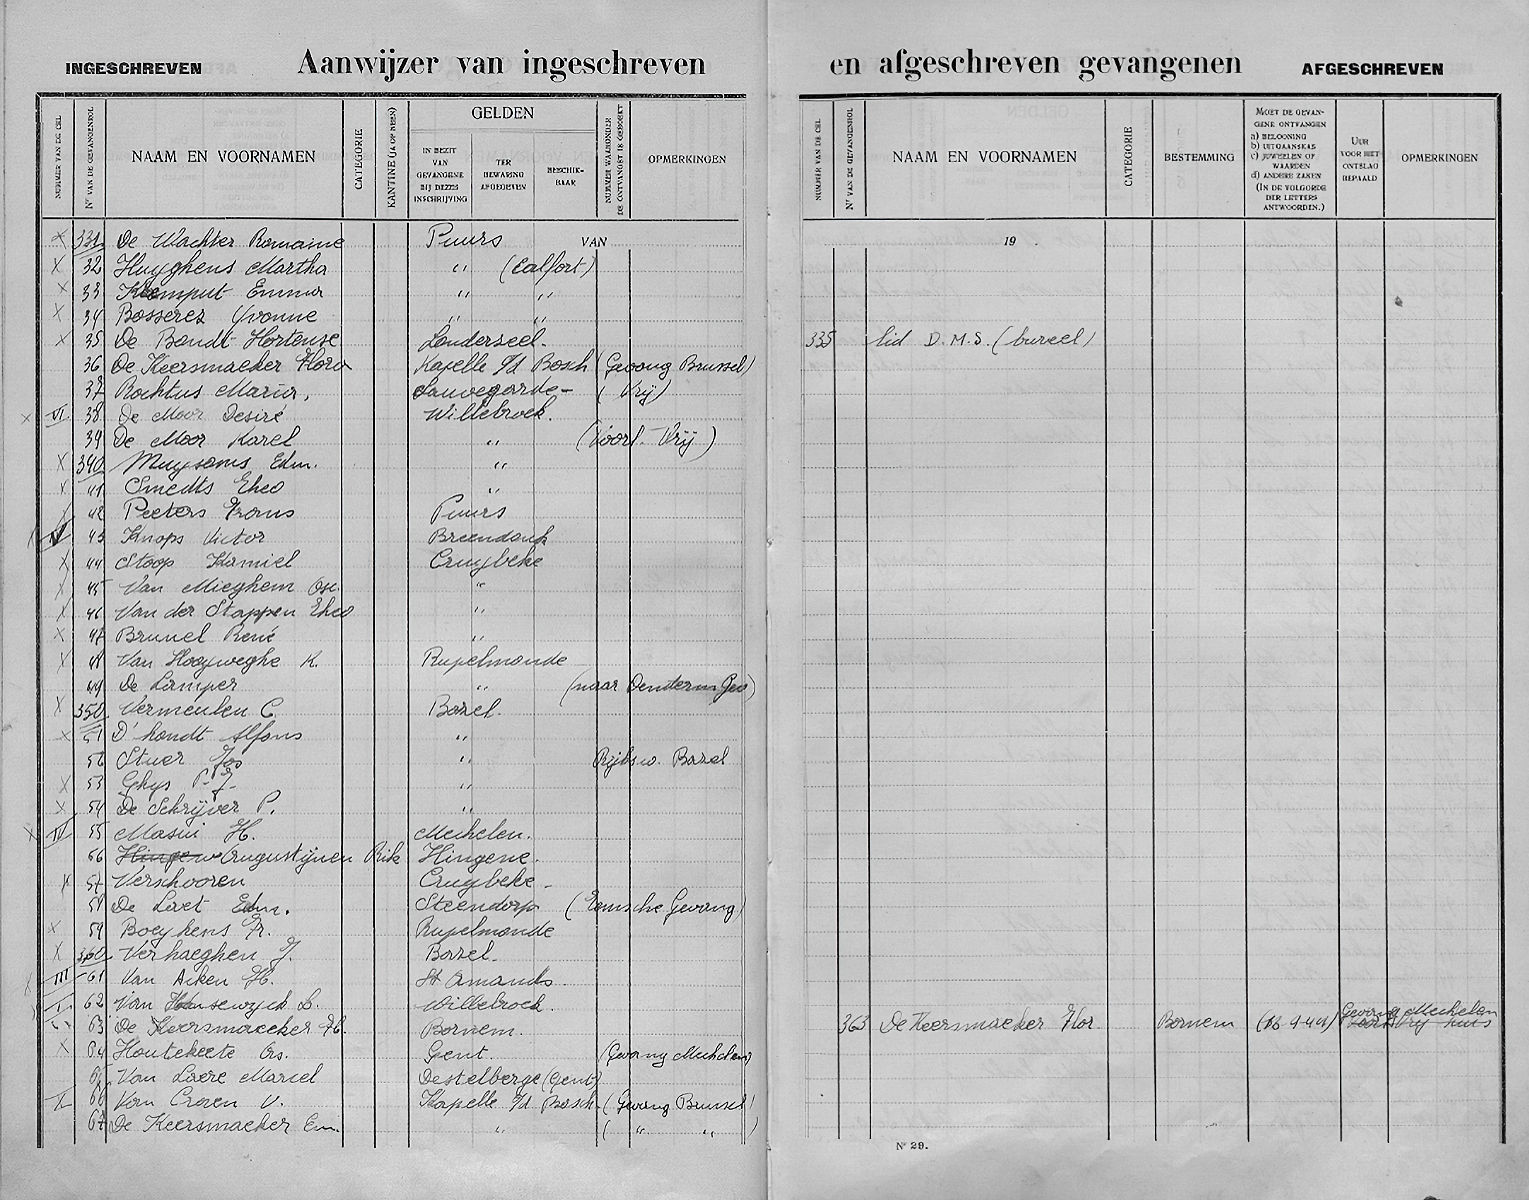 INGESCHREVEN Aanwijzer van ingeschreven en afgeschreven gevangenen AFGESCHREVEN
NUMMER VAN DE CEL
Nr VAN DE GEVANGENROL
NAAM EN VOORNAMEN
CATEGORIE
KANTINE (JA OF NEEN)
GELDEN
IN BEZIT VAN GEVANGENE BIJ DEZES INSCHRIJVING
TER BEWARING AFGEGEVEN
BESCHIKBAAR
NUMMER WAARONDER DE ONTVANGST IS GEBOEKT
OPMERKINGEN
NUMMER VAN DE CEL
Nr VAN DE GEVANGENROL
NAAM EN VOORNAMEN
CATEGORIE
BESTEMMING
MOET DE GEVAN-
GENE ONTVANGEN
a) BELOONING
b) UITGAANSKAS
c) JUWEELEN OF
WAARDEN
d) ANDERE ZAKEN
(IN DE VOLGORDE
DER LETTERS
ANTWOORDEN.)
UUR
VOOR HET
ONTSLAG
BEPAALD
OPMERKINGEN
x 331 De Wachter Romaine Puurs VAN 19 .
x 32 Huyghens Martha " (Calfort)
x 33 Keemput Emma " "
x 34 Bosserez Yvonne " "
x 35 De Bondt Hortense Londerseel. 335 lid D.M.S. (bureel)
36 De Keersmaeker Flora Kapelle o/d Bosch (Gevang Brussel)
37 Rochtus Maria, Sauvegarde - (Vrij)
x VI 38 De Moor Desiré Willebroek.
39 De Moor Karel " (Voorl. Vrij)
x 340 Muysoms Edm. "
x 41 Smedts Theo "
42 Peeters Frans Puurs
43 Knops Victor Breendonk
x 44 Stoop Kamiel Cruybeke
45 Van Mieghem Osc. "
x 46 Van der Stappen Theo "
x 47 Brunel René "
x 48 Van Hooyweghe K. Rupelmonde
49 De Lamper " (naar Denderm Gev)
x 350 Vermeulen C. Bazel.
x 51 D'hondt Alfons "
56 Stuer Jos " Rijksw. Bazel
x 53 Ghys P. J. "
x 54 De Schrijver P. "
x 55 Masui H. Mechelen.
56 Hingene Augustijnen Rik Hingene.
x 57 Verschooren Cruybeke -
58 De Loet Edm. Steendorp (Temsche Gevang)
x 59 Boeykens Fr. Rupelmonde
x 360 Verhaeghen J. Bazel.
III 61 Van Aken H. St Amands.
62 Van Hensewyck L. Willebroek.
63 De Keersmaecker Fl. Bornem. 363 De Keersmaeker Flor. Bornem (18-9-44) Gevang Mechelen Voorl Vrij huis
x 64 Houtekeete Os. Gent. (Gevang Mechelen)
65 Van Laere Marcel Destelberge (Gent)
66 Van Croen V. Kapelle o/d Bosch. (Gevang Brussel)
67 De Keersmaeker Em. " ( " " )
No 29.